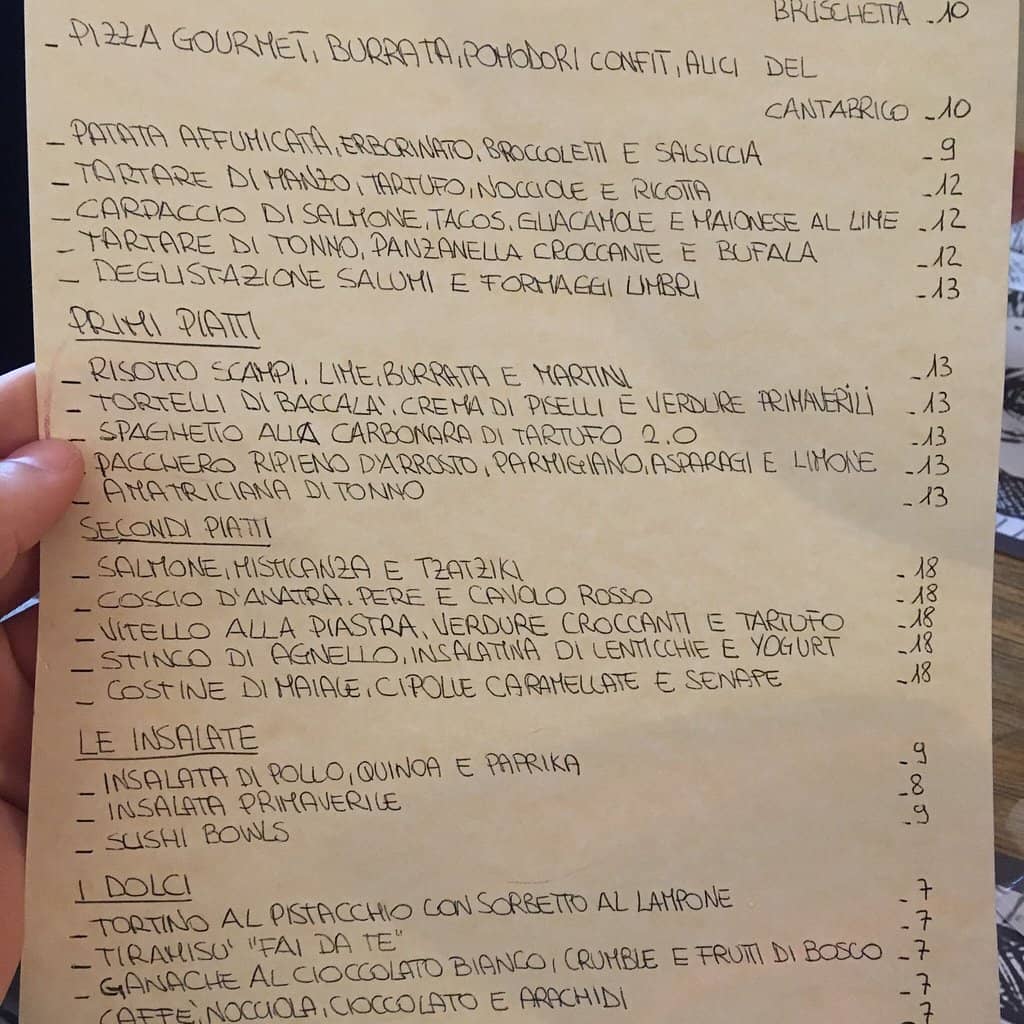 BRUSCHETTA -10
- PIZZA GOURMET, BURRATA, POMODORI CONFIT, ALICI DEL
CANTABRICO -10
- PATATA AFFUMICATA, ERBORINATO, BROCCOLETTI E SALSICCIA -9
- TARTARE DI MANZO, TARTUFO, NOCCIOLE E RICOTTA -12
- CARPACCIO DI SALMONE, TACOS, GUACAMOLE E MAIONESE AL LIME -12
- TARTARE DI TONNO, PANZANELLA CROCCANTE E BUFALA -12
- DEGUSTAZIONE SALUMI E FORMAGGI UMBRI -13
PRIMI PIATTI
- RISOTTO SCAMPI, LIME, BURRATA E MARTINI -13
- TORTELLI DI BACCALA', CREMA DI PISELLI E VERDURE PRIMAVERILI -13
- SPAGHETTO ALLA CARBONARA DI TARTUFO 2.0 -13
- PACCHERO RIPIENO D'ARROSTO, PARMIGIANO, ASPARAGI E LIMONE -13
- AMATRICIANA DI TONNO -13
SECONDI PIATTI
- SALMONE, MISTICANZA E TZATZIKI -18
- COSCIO D'ANATRA, PERE E CAVOLO ROSSO -18
- VITELLO ALLA PIASTRA, VERDURE CROCCANTI E TARTUFO -18
- STINCO DI AGNELLO, INSALATINA DI LENTICCHIE E YOGURT -18
- COSTINE DI MAIALE, CIPOLLE CARAMELLATE E SENAPE -18
LE INSALATE
- INSALATA DI POLLO, QUINOA E PAPRIKA -9
- INSALATA PRIMAVERILE -8
- SUSHI BOWLS -9
I DOLCI
- TORTINO AL PISTACCHIO CON SORBETTO AL LAMPONE -7
- TIRAMISU' "FAI DA TE" -7
- GANACHE AL CIOCCOLATO BIANCO, CRUMBLE E FRUTTI DI BOSCO -7
- CAFFE', NOCCIOLA, CIOCCOLATO E ARACHIDI -7
-7